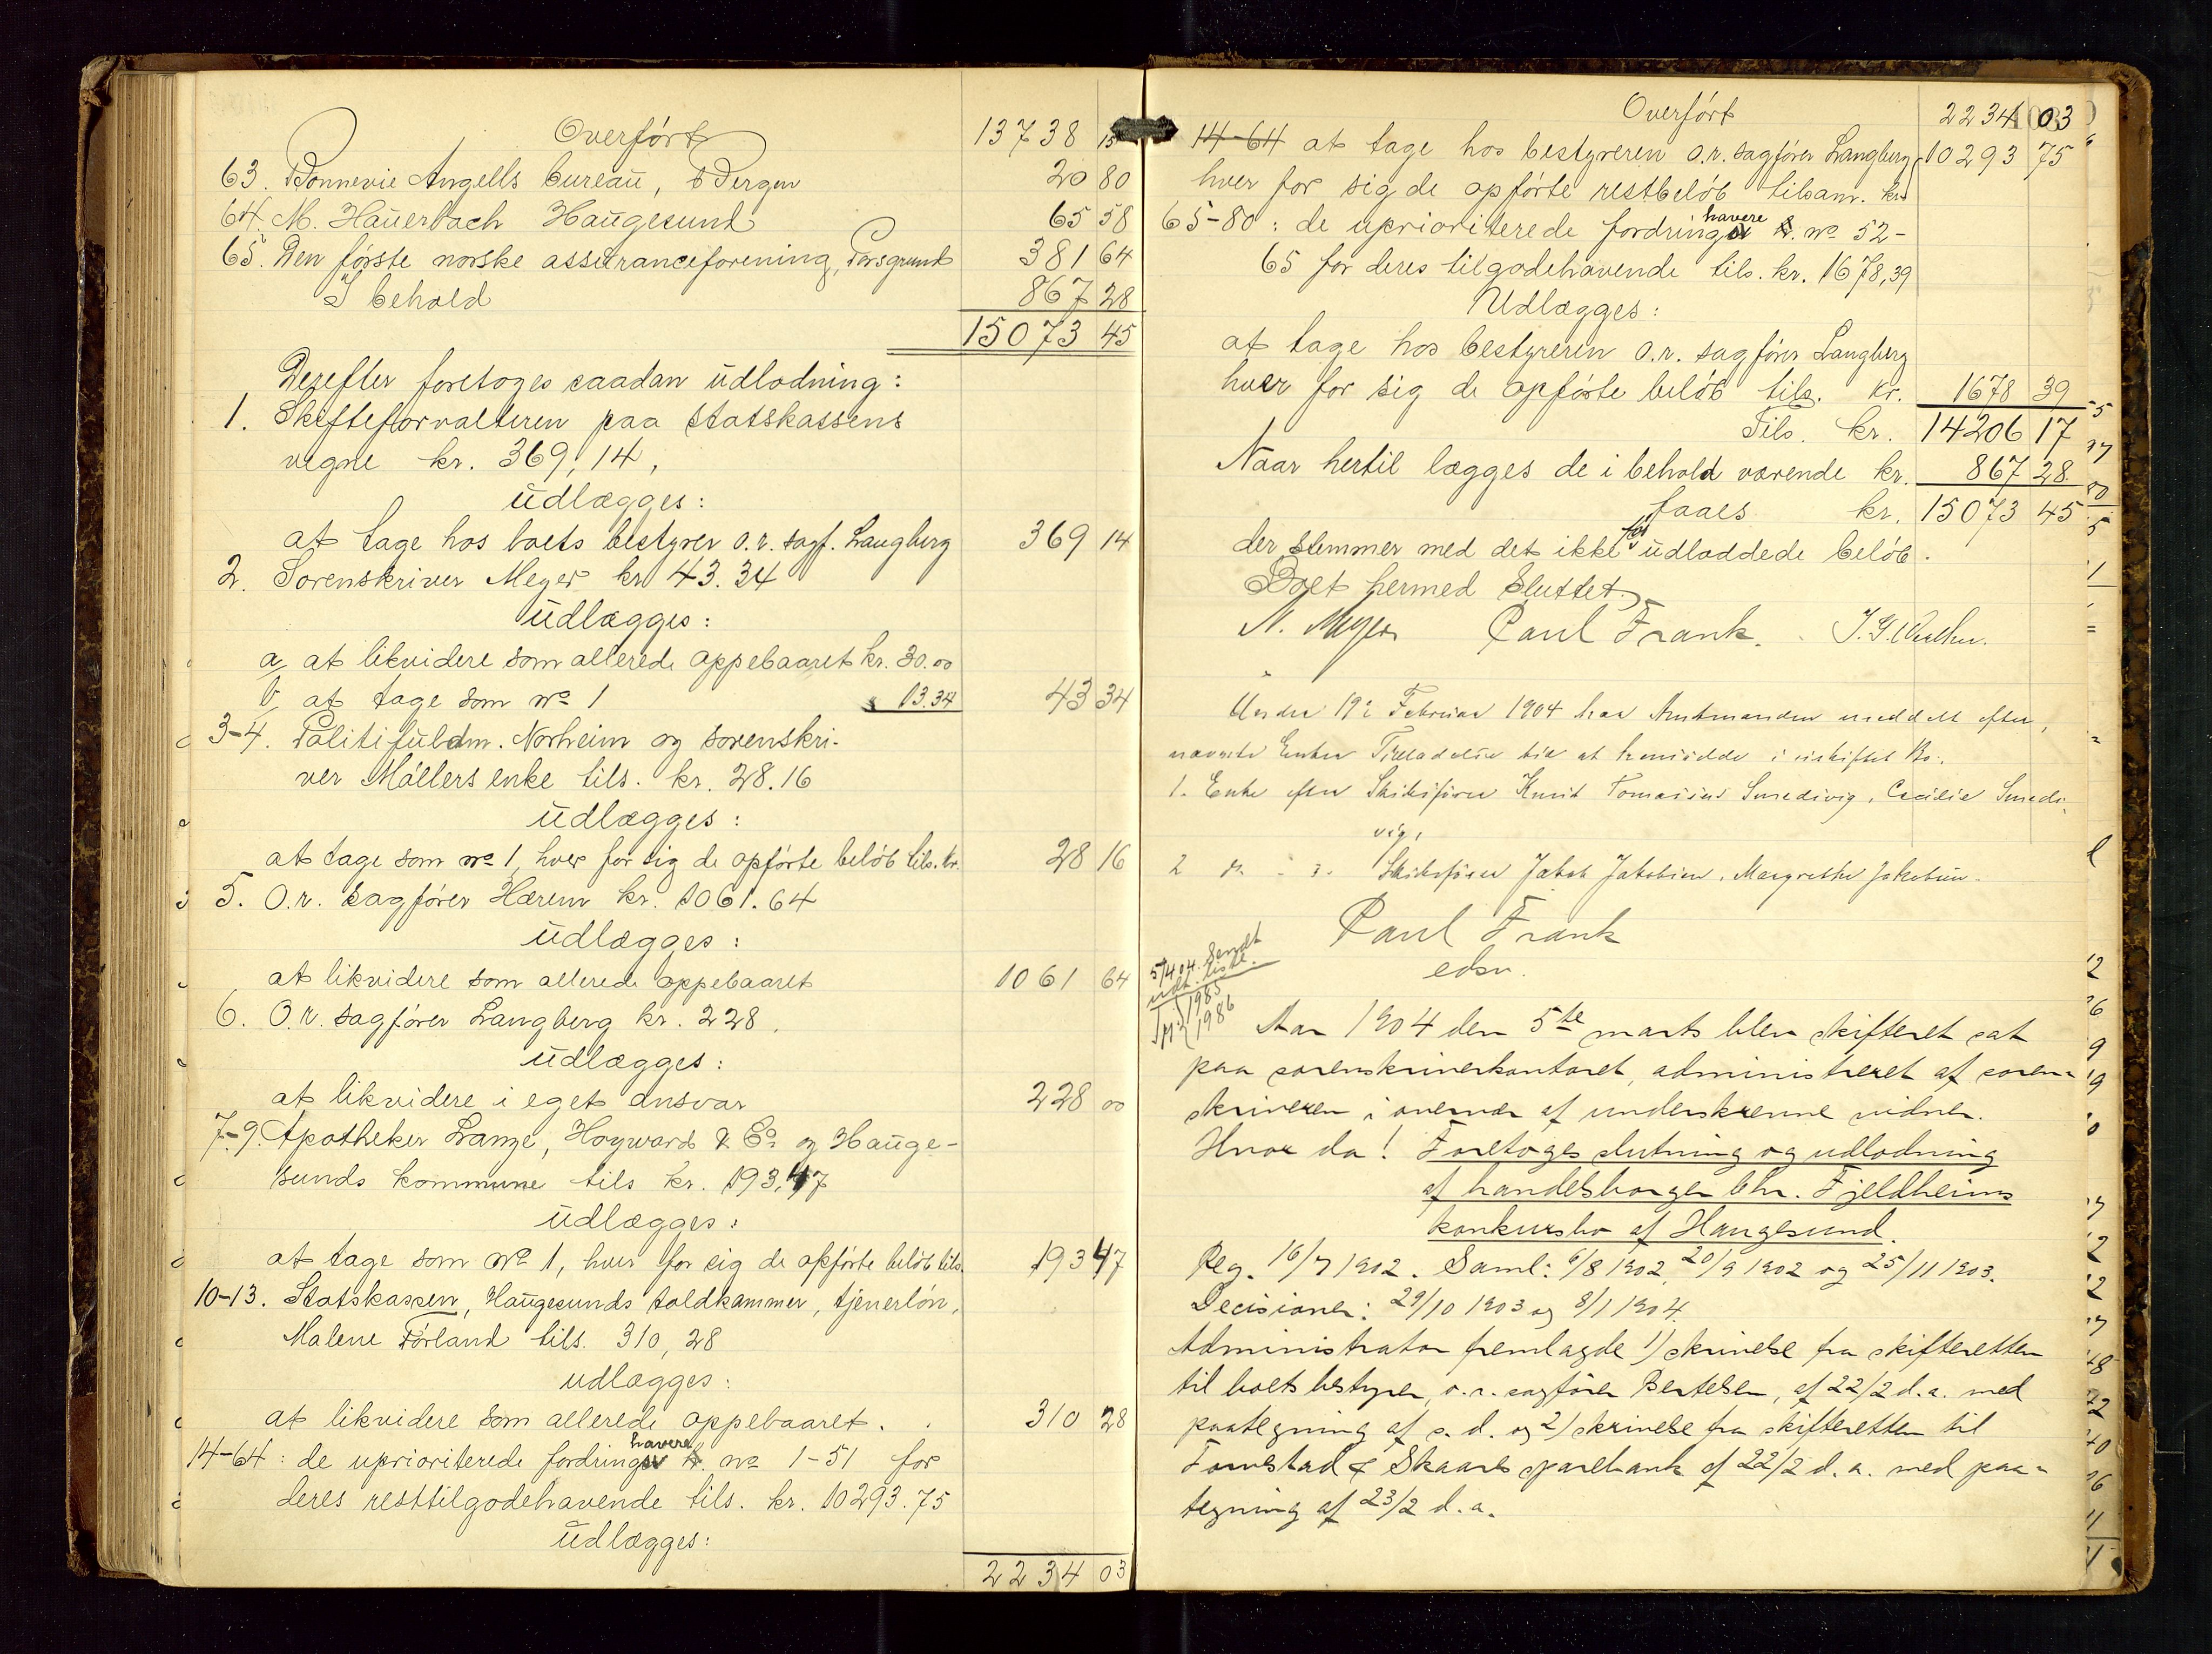 Overført 13738 15
63. Bonnevie Angells bureau, Bergen 20 80
64. M. Hauerbach Haugesund 65 58
65. Den første norske assuranceforening, Porsgrund 381 64
I behold 867 28
15073 45
Derefter foretoges saadan udlodning:
1. Skifteforvalteren paa statskassens
vegne kr. 369,14,
udlægges:
at tage hos boets bestyrer o.r. sagf. Langberg 369 14
2. Sorenskriver Meyer kr 43.34
udlægges:
a, at likvidere som allerede oppebaaret kr. 30.00
b, at tage som No 1 " 13.34 43 34
3-4. Politifuldm. Norheim og sorenskri-
ver Møllers enke tils. kr. 28.16
udlægges:
at tage som No 1, hver for sig de opførte beløb tils. kr. 28 16
5. O.r. sagfører Hærem kr. 1061.64
udlægges:
at likvidere som allerede oppebaaret 1061 64
6. O.r. sagfører Langberg kr. 228.
udlægges:
at likvidere i eget ansvar 228 00
7-9. Apotheker Lange, Hoyward & Co. og Hauge-
sunds kommune tils kr. 193,47
udlægges:
at tage som No 1, hver for sig de opførte beløb tils. 193 47
10-13. Statskassen, Haugesunds toldkammer, tjenerløn,
Malene Førland tils. 310,28
udlægges:
at likvidere som allerede oppebaaret. 310 28
14-64: de uprioriterede fordringshavere No 1-51 for
deres resttilgodehavende tils. kr. 10293.75
udlægges:
2234 03
Overført 2234 03
14-64 at tage hos bestyreren o.r. sagfører Langberg 10293 75
hver for sig de opførte restbeløb tilsam. kr.
65-80: de uprioriterede fordringshavere No 52-
65 for deres tilgodehavende tils. kr. 1678,39
Udlægges:
at tage hos bestyreren o.r. sagfører Langberg
hver for sig de opførte beløb tils. kr. 1678 39
Tils. kr. 14206 17
Naar hertil lægges de i behold værende kr. 867 28
faaes kr. 15073 45
der stemmer med det ikke før udloddede beløb.
Boet hermed sluttet.
N. Meyer Paul Frank.
Under 19de Februar 1904 har Amtmanden meddelt efter-
nævnte Enker Tilladelse til at henseidde i uskiftet Bo:
1. Enke efter Skibsfører Knut Tomasius Smedsvig, Cecilie Smeds-
vig,
2 do " " Skibsfører Jakob Jakobsen, Margrethe Jakobsen.
Paul Frank
edsv.
5/4 04. Sendt
indb. liste.
No 1 1985
No 2 1986
Aar 1904 den 5te marts blev skifteret sat
paa sorenskriverkontoret, administreret af soren-
skriveren i overvær af underskrevne vidner.
Hvor da! Foretoges slutning og udlodning
af handelsborger Chr. Fjeldheims
konkursbo af Haugesund.
Reg. 16/7 1902. Saml: 6/8 1902, 20/9 1902 og 25/11 1903.
Decisioner: 29/10 1903 og 8/1 1904.
Administrator fremlagde 1) skrivelse fra skifteretten
til boets bestyrer, o.r. sagfører Bertelsen, af 22/2 d.a. med
paategning af s. d. og 2) skrivelse fra skifteretten til
Tornestad & Skaare sparebank af 22/2 d.a. med paa-
tegning af 23/2 d.a.